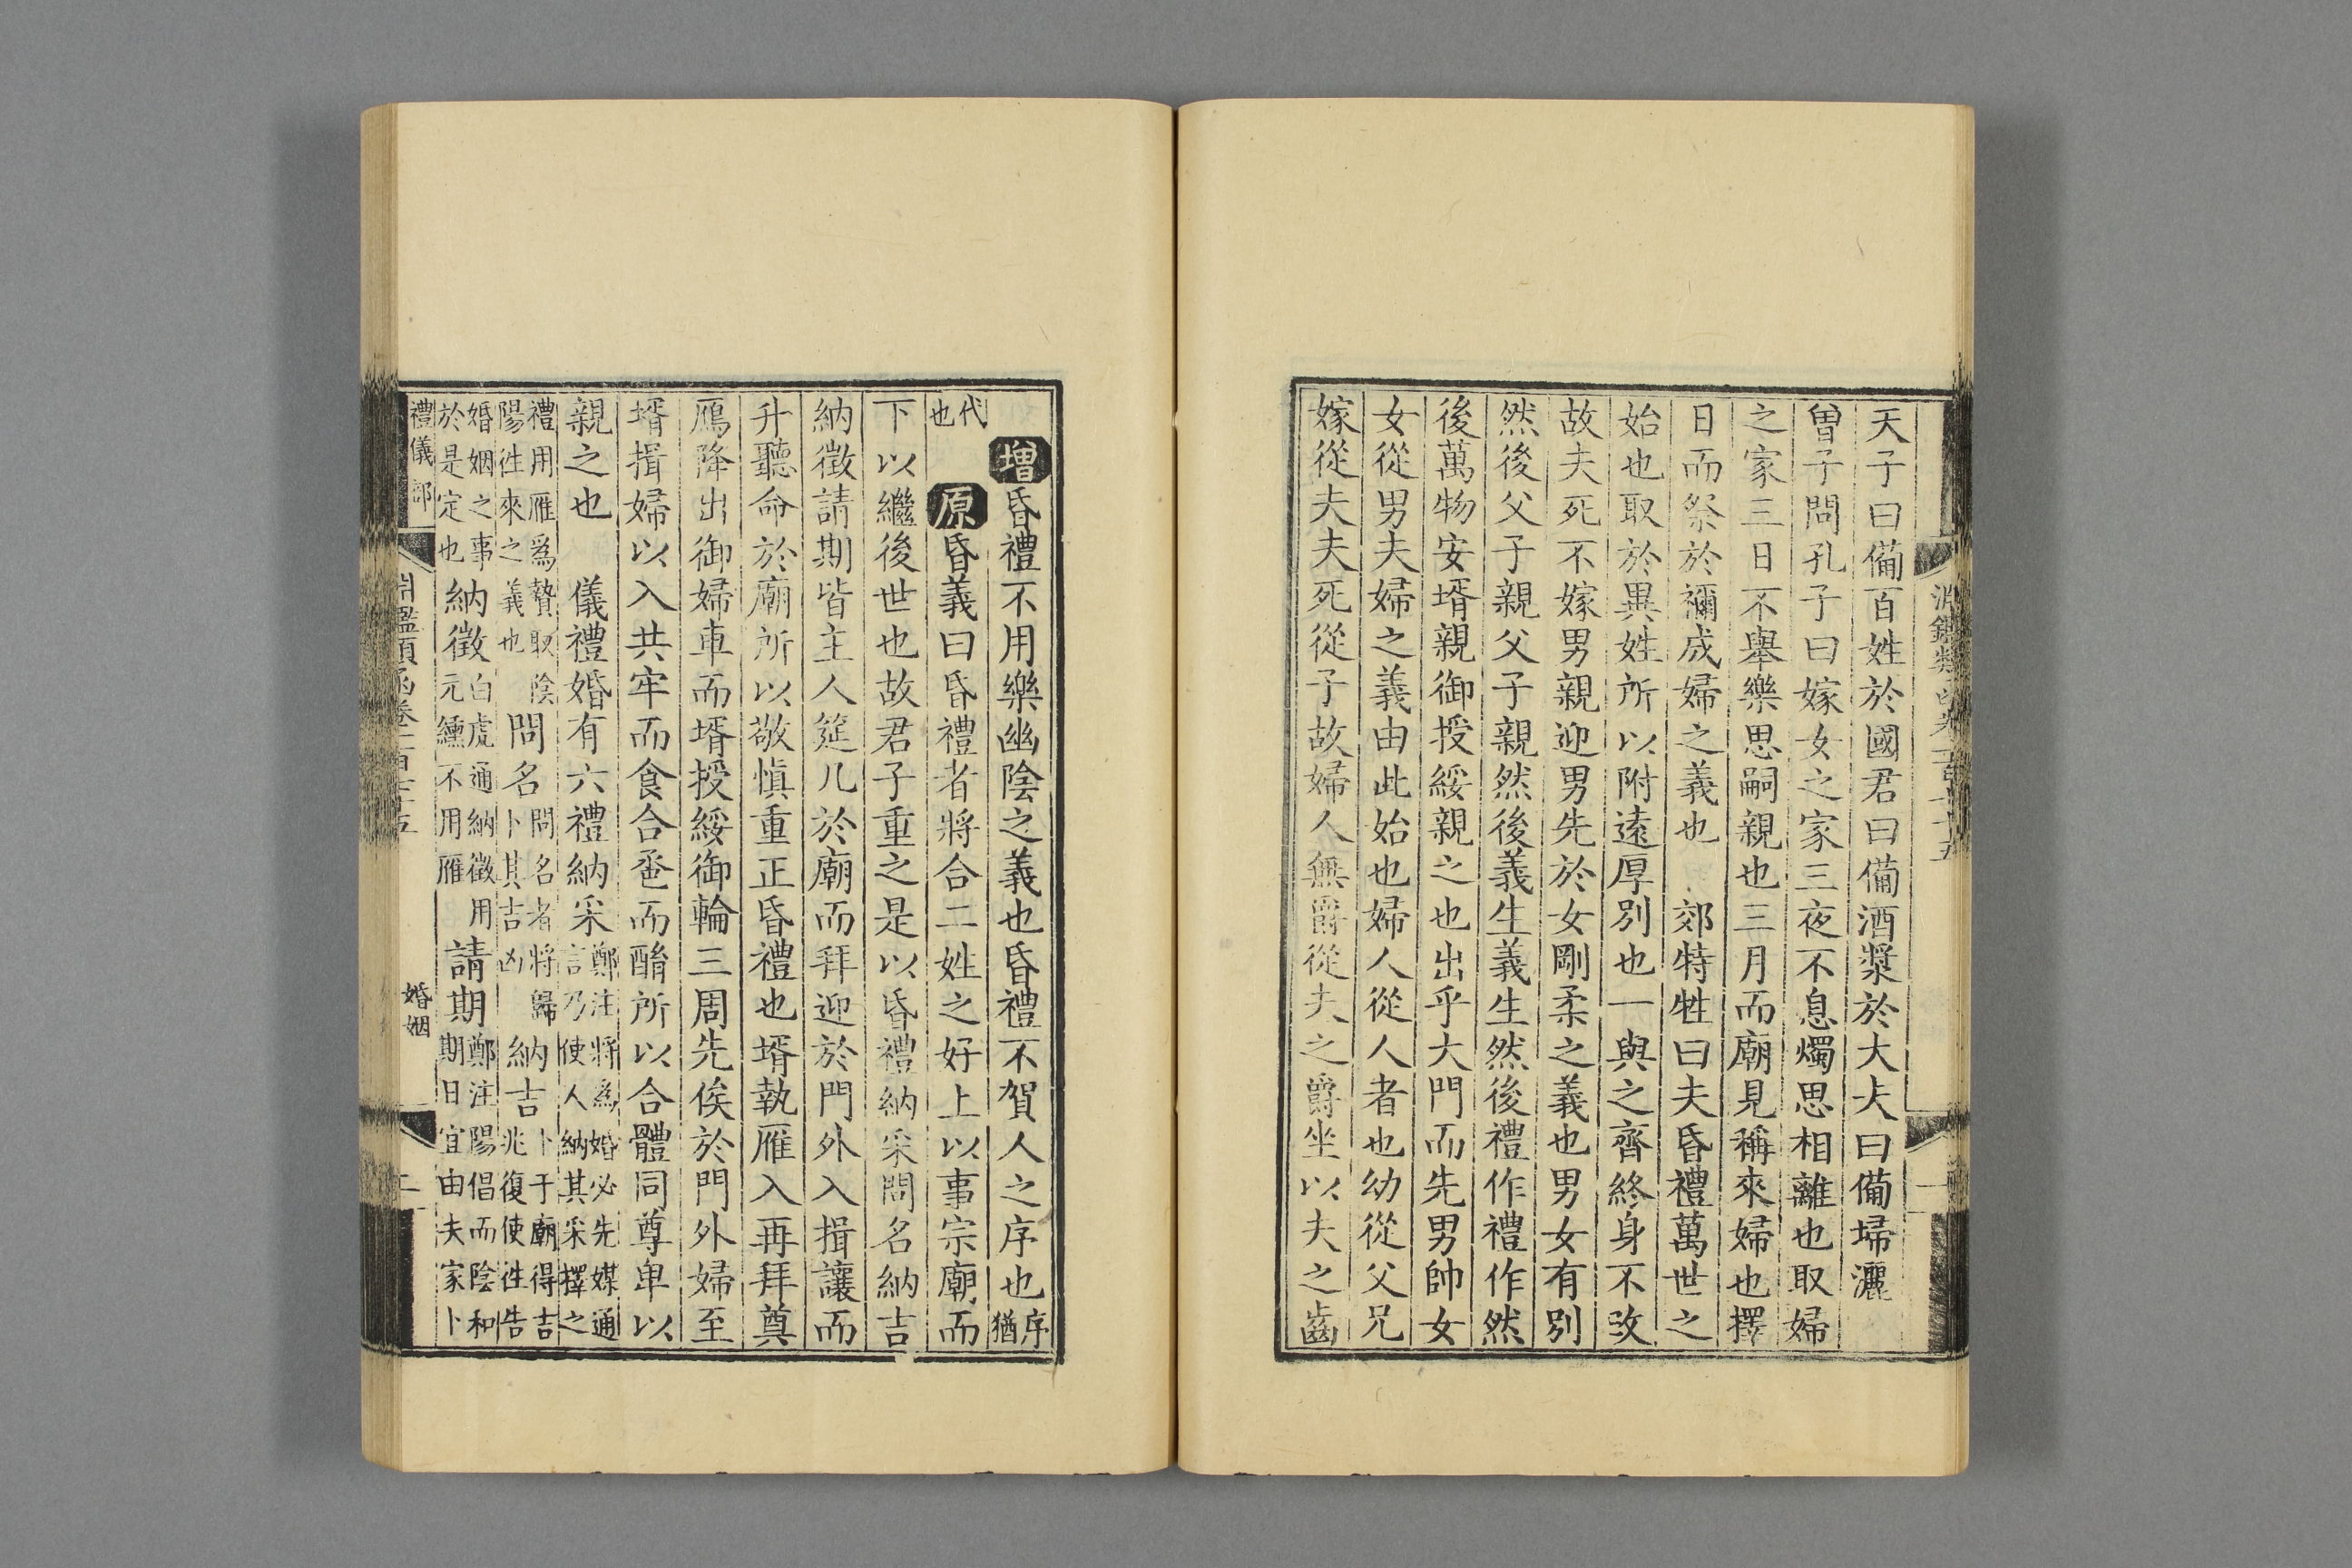 天子曰備百姓於國君曰備酒漿於大夫曰備埽灑
曾子問孔子曰嫁女之家三夜不息燭思相離也取婦
之家三日不舉樂思嗣親也三月而廟見稱來婦也擇
日而祭於禰成婦之義也 郊特牲曰夫昏禮萬世之
始也取於異姓所以附遠厚別也一與之齊終身不改
故夫死不嫁男親迎男先於女剛柔之義也男女有別
然後父子親父子親然後義生義生然後禮作禮作然
後萬物安壻親御授綏親之也出乎大門而先男帥女
女從男夫婦之義由此始也婦人從人者也幼從父兄
嫁從夫夫死從子故婦人無爵從夫之爵坐以夫之齒
增昏禮不用樂幽陰之義也昏禮不賀人之序也序猶
代也 原昏義曰昏禮者將合二姓之好上以事宗廟而
下以繼後世也故君子重之是以昏禮納采問名納吉
納徵請期皆主人筵几於廟而拜迎於門外入揖讓而
升聽命於廟所以敬慎重正昏禮也壻執雁入再拜奠
鴈降出御婦車而壻授綏御輪三周先俟於門外婦至
壻揖婦以入共牢而食合巹而酳所以合體同尊卑以
親之也 儀禮婚有六禮納采鄭注將為婚必先媒通言乃使人納其采擇之
禮用雁為贄取陰陽往來之義也問名問名者將歸卜其吉凶納吉卜于廟得吉兆復使往告
婚姻之事於是定也納徵白虎通納徵用元纁不用雁請期鄭注陽倡而陰和期日宜由夫家卜
禮儀部
淵鑑類函卷二百七十五
婚姻
二